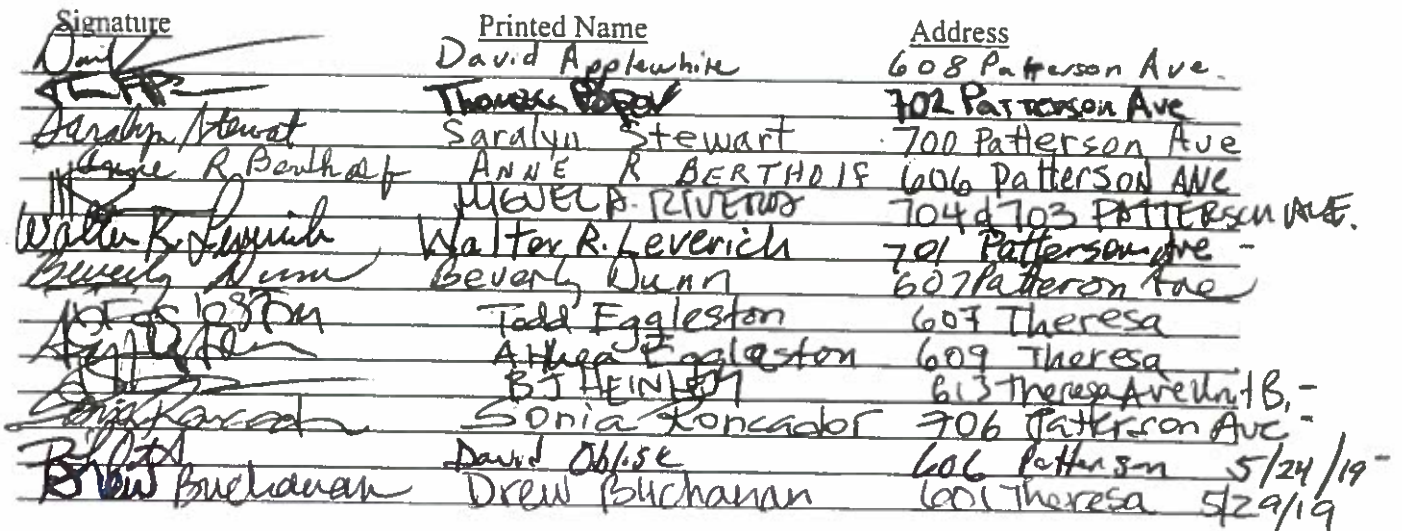 Signature Printed Name Address
David Applewhite 608 Patterson Ave.
Thomas Popov 702 Patterson Ave
Saralyn Stewart Saralyn Stewart 700 Patterson Ave
Anne R Berthold ANNE R BERTHOLF 606 Patterson AVE
MIGUEL A. RIVERA 704 & 703 PATTERSON AVE.
Walter R. Leverich Walter R. Leverich 701 Patterson Ave -
Beverly Dunn Beverly Dunn 607 Patteron Ave
Todd Eggleston 607 Theresa
Eggleston 609 Theresa
BJ HEINLEY 613 Theresa Ave Unit B, -
Sonia Roncador Sonia Roncador 706 Patterson Ave -
David 606 Patterson 5/24/19 -
Drew Buchanan Drew Buchanan 601 Theresa 5/29/19